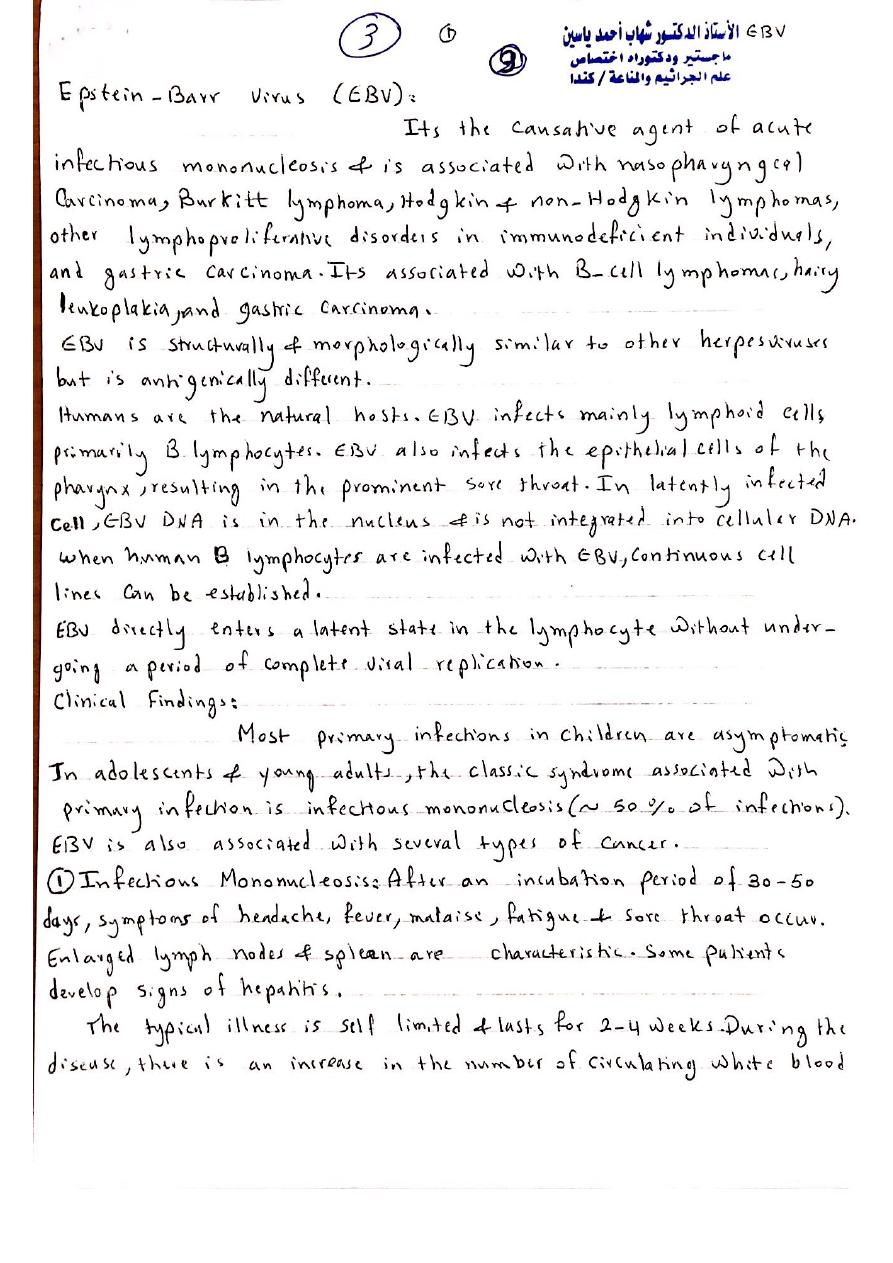 3 1 الأستاذ الدكتور شهاب أحمد ياسين EBV
9 ماجستير ودكتوراه اختصاص
علم الجراثيم والمناعة / كندا
Epstein-Barr Virus (EBV):
Its the causative agent of acute
infectious mononucleosis & is associated with nasopharyngeal
Carcinoma, Burkitt lymphoma, Hodgkin & non-Hodgkin lymphomas,
other lymphoproliferative disorders in immunodeficient individuals,
and gastric carcinoma. Its associated with B-cell lymphomas, hairy
leukoplakia, and gastric carcinoma.
EBV is structurally & morphologically similar to other herpesviruses
but is antigenically different.
Humans are the natural hosts. EBV infects mainly lymphoid cells,
primarily B lymphocytes. EBV also infects the epithelial cells of the
pharynx, resulting in the prominent sore throat. In latently infected
Cell, EBV DNA is in the nucleus & is not integrated into cellular DNA.
when human B lymphocytes are infected with EBV, Continuous cell
lines can be established.
EBV directly enters a latent state in the lymphocyte without under-
going a period of complete viral replication.
Clinical Findings:
Most primary infections in children are asymptomatic.
In adolescents & young adults, the classic syndrome associated with
primary infection is infectious mononucleosis (~ 50% of infections).
EBV is also associated with several types of cancer.
① Infectious Mononucleosis: After an incubation period of 30-50
days, symptoms of headache, fever, malaise, fatigue & sore throat occur.
Enlarged lymph nodes & spleen are characteristic. Some patients
develop signs of hepatitis.
The typical illness is self limited & lasts for 2-4 weeks. During the
disease, there is an increase in the number of circulating white blood